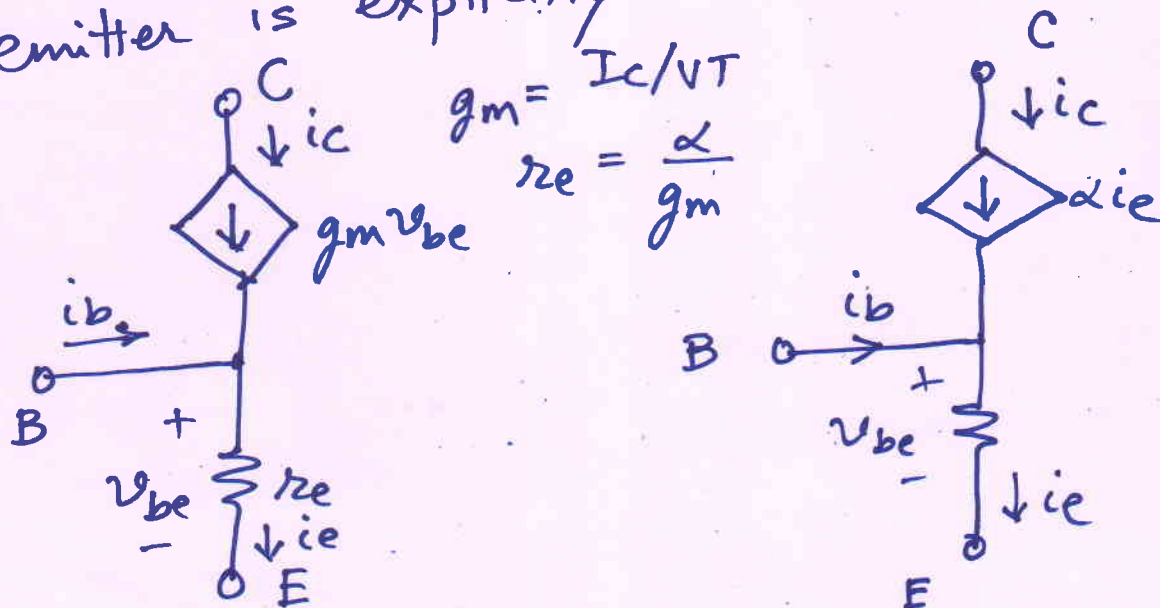 emitter is
C
ic
gm = Ic/VT
re = α/gm
gm vbe
ib
B
+
vbe
-
re
ie
E
C
ic
α ie
ib
B
+
vbe
-
ie
E